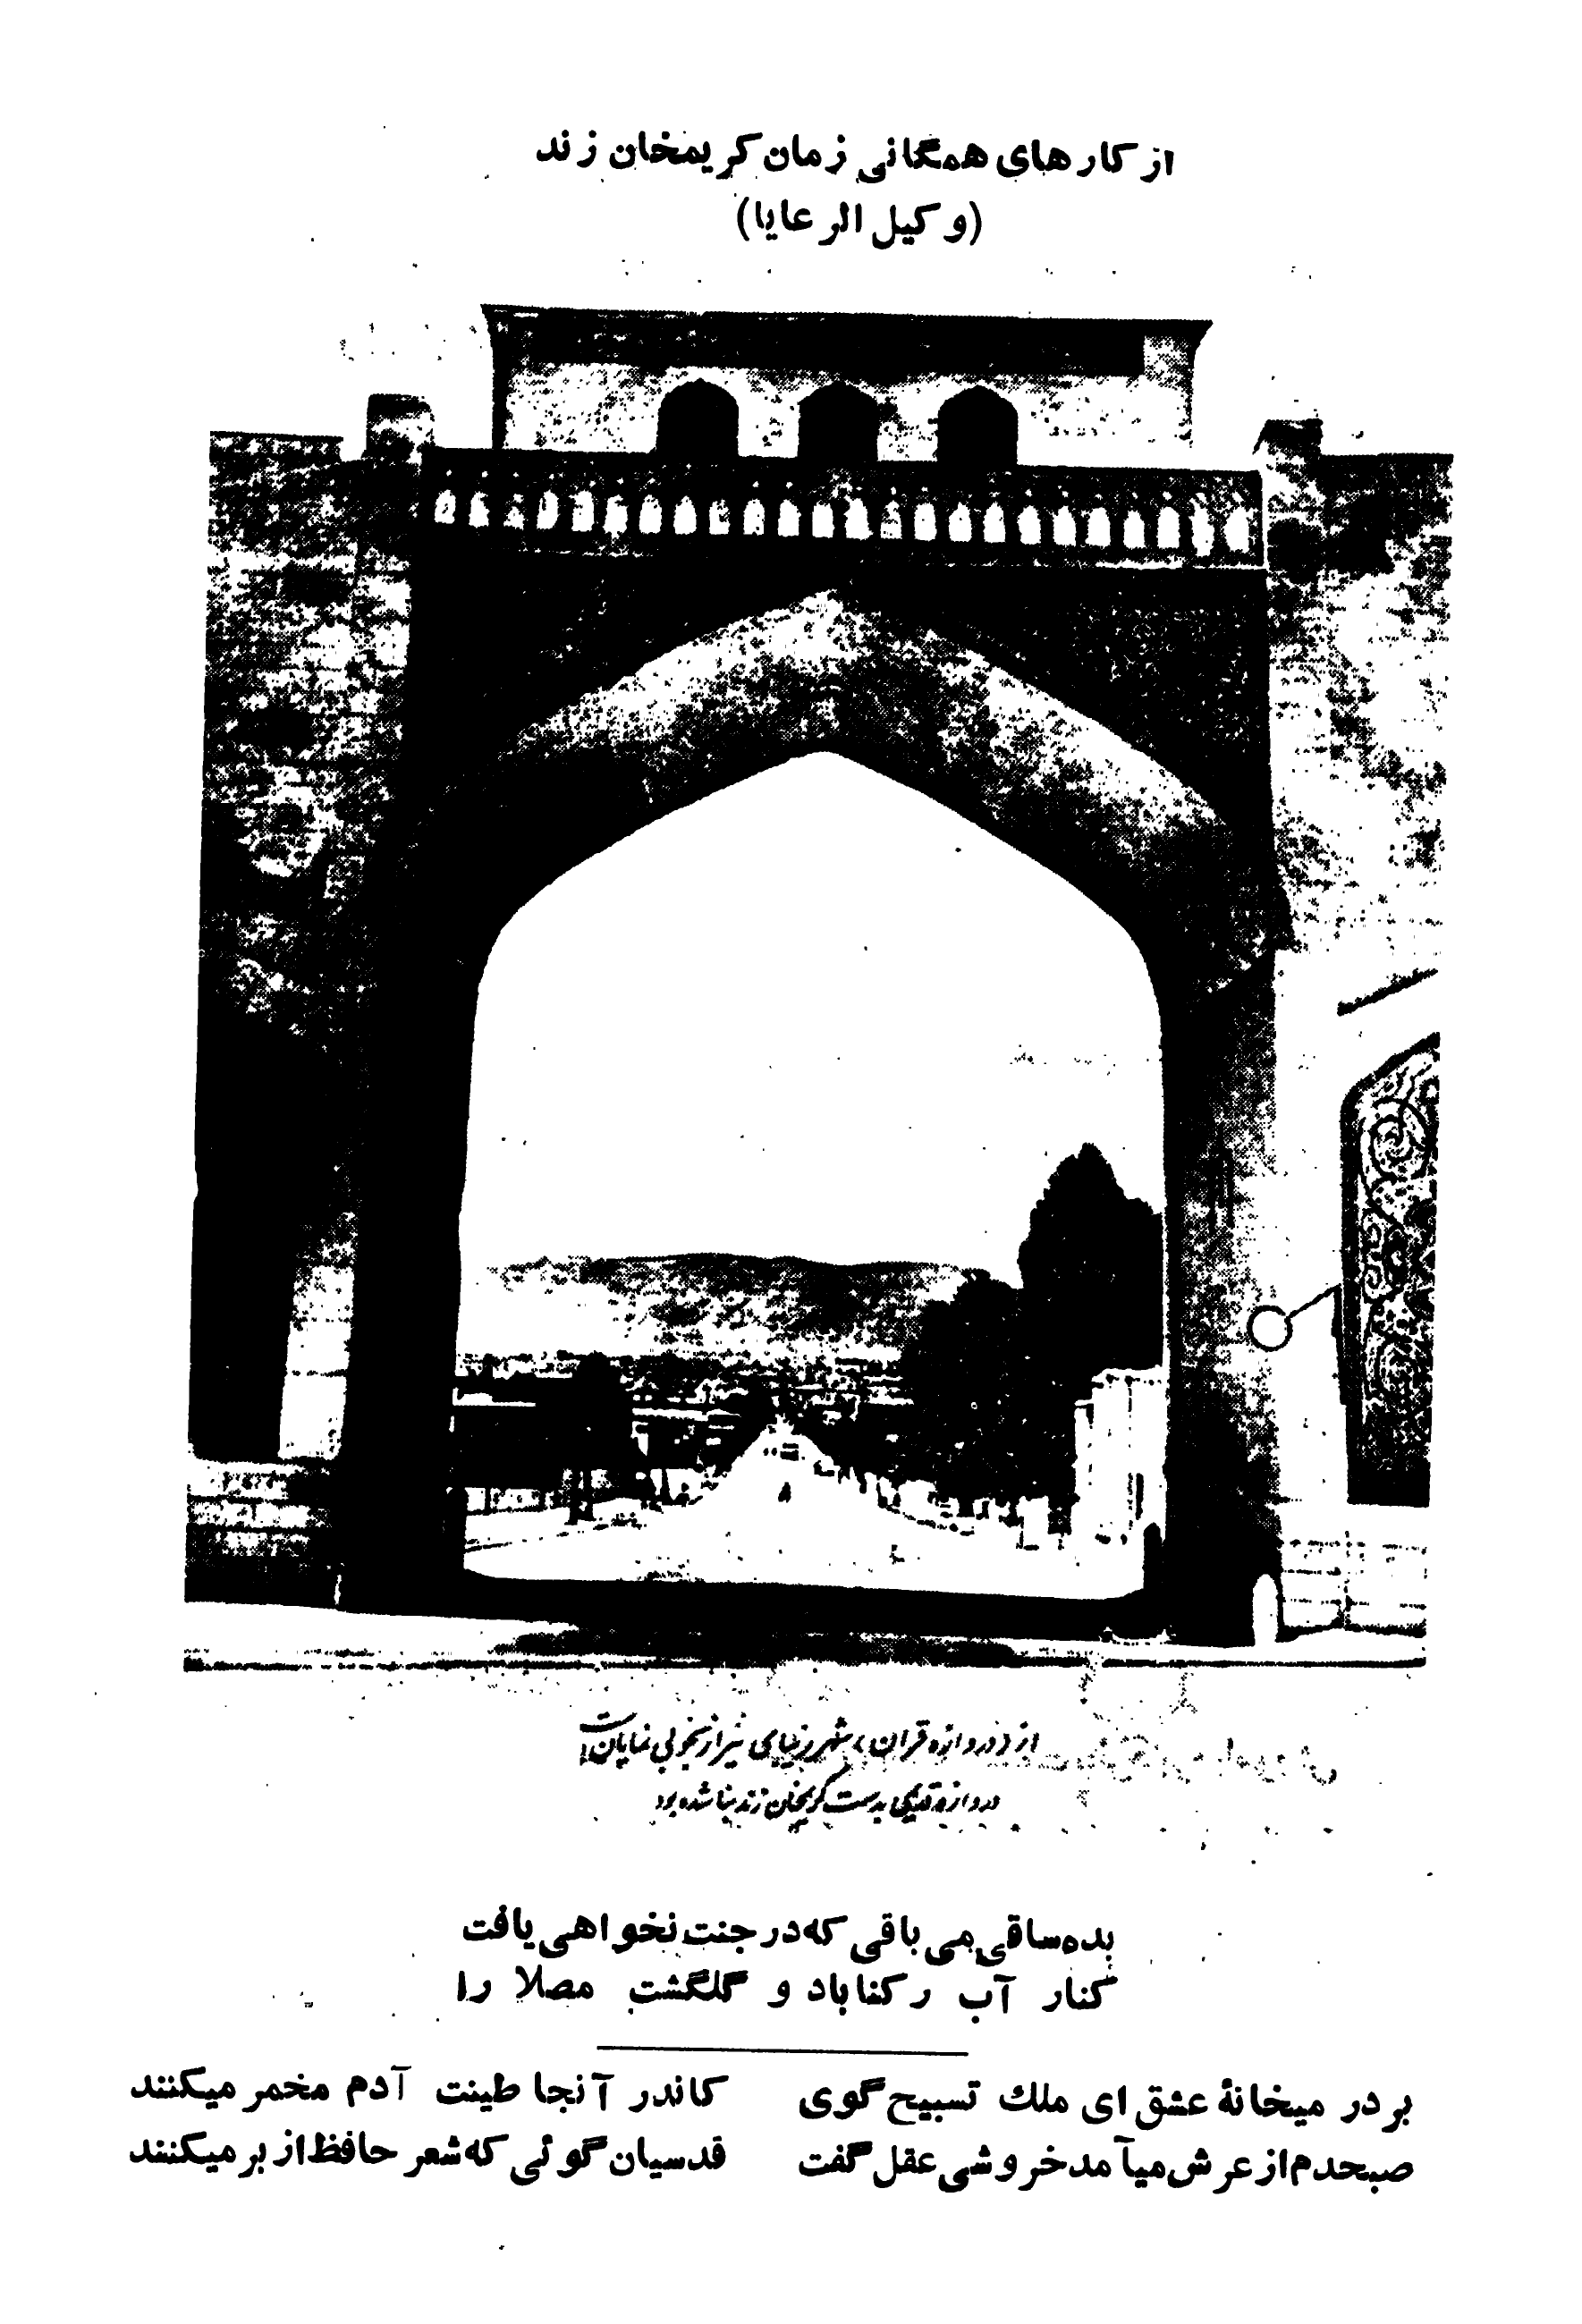 از کارهای همگانی زمان کریمخان زند
(وکیل الرعایا)
از (دروازه قرآن)، شهر زیبای شیراز بخوبی نمایان است
دروازه قدیمی بدست کریمخان زند بنا شده بود
بده ساقی می باقی که در جنت نخواهی یافت
کنار آب رکناباد و گلگشت مصلا را
بر در میخانهٔ عشق ای ملك تسبیح گوی کاندر آنجا طینت آدم مخمر میکنند
صبحدم از عرش میآمد خروشی عقل گفت قدسیان گوئی که شعر حافظ از بر میکنند